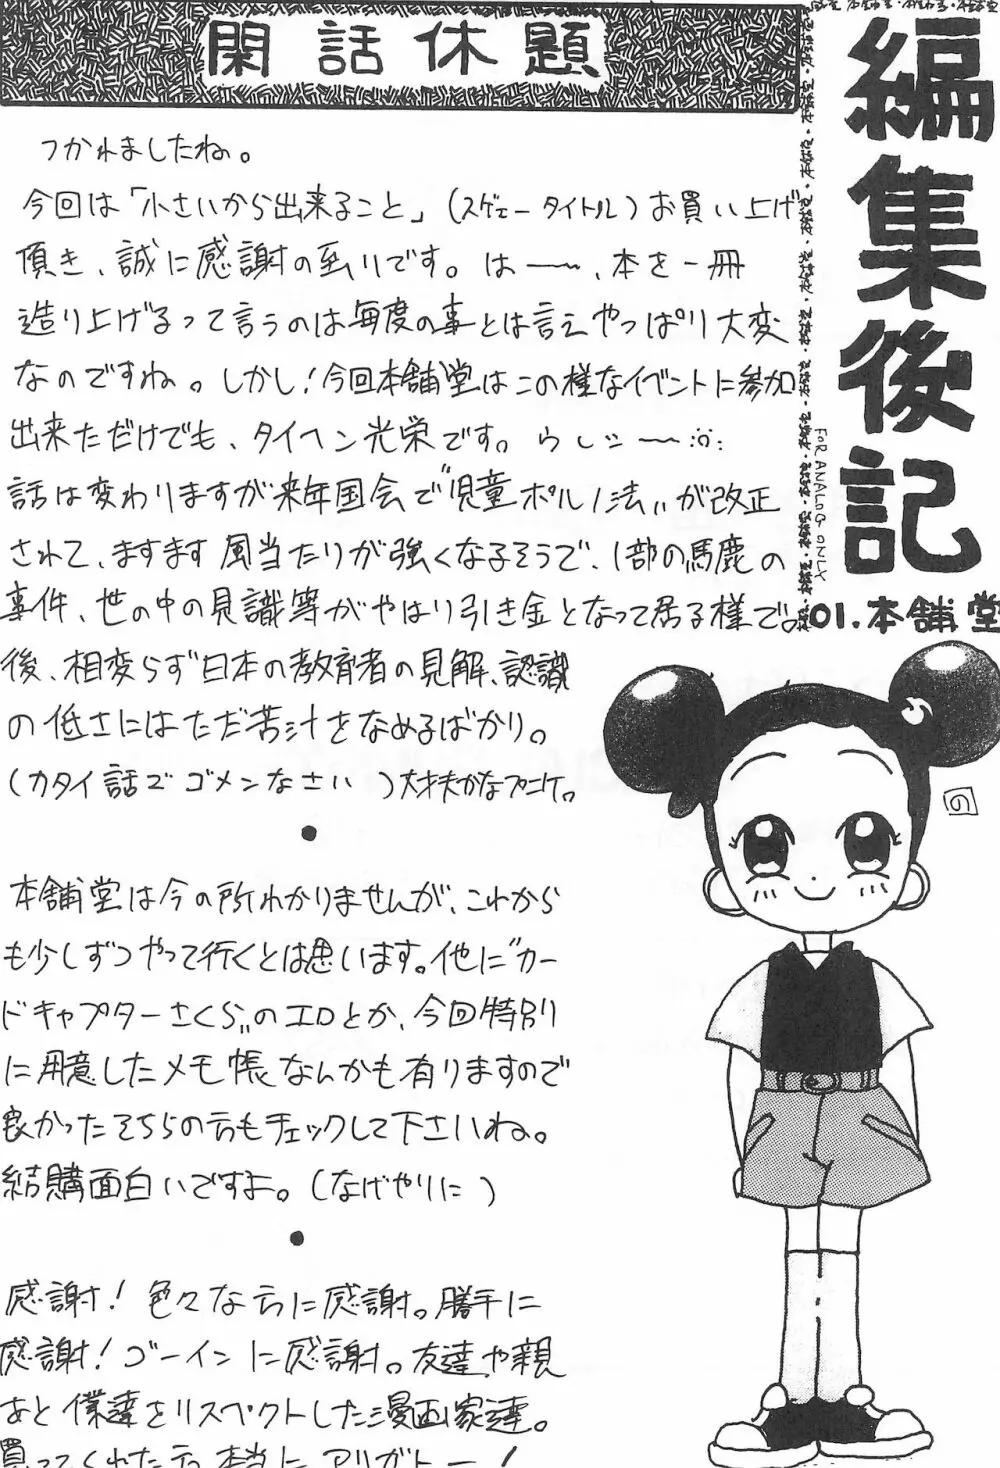 編集後記
FOR ANALOG ONLY
01.本舗堂
閑話休題
つかれましたね。
今回は「小さいから出来ること」(スゲェータイトル)お買い上げ
頂き、誠に感謝の至りです。は〜、本を一冊
造り上げるって言うのは毎度の事とは言えやっぱり大変
なのですね。しかし!今回本舗堂はこの様なイベントに参加
出来ただけでも、タイヘン光栄です。うしシ〜
話は変わりますが来年国会で"児童ポルノ法"が改正
されて、ますます風当たりが強くなるそうで、1部の馬鹿の
事件、世の中の見識等がやはり引き金となって居る様で。
後、相変らず日本の教育者の見解、認識
の低さにはただ苦汁をなめるばかり。
(カタイ話でゴメンなさい)大丈夫かな
●
本舗堂は今の所わかりませんが、これから
も少しずつやって行くとは思います。他に"カー
ドキャプターさくら"のエロとか、今回特別
に用意したメモ帳なんかも有りますので
良かったそちらの方もチェックして下さいね。
結購面白いですよ。(なげやりに)
●
感謝!色々な方に感謝。勝手に
感謝!ゴーインに感謝。友達や親
あと僕達をリスペクトした漫画家達。
買ってくれた方本当にアリガトー!
の